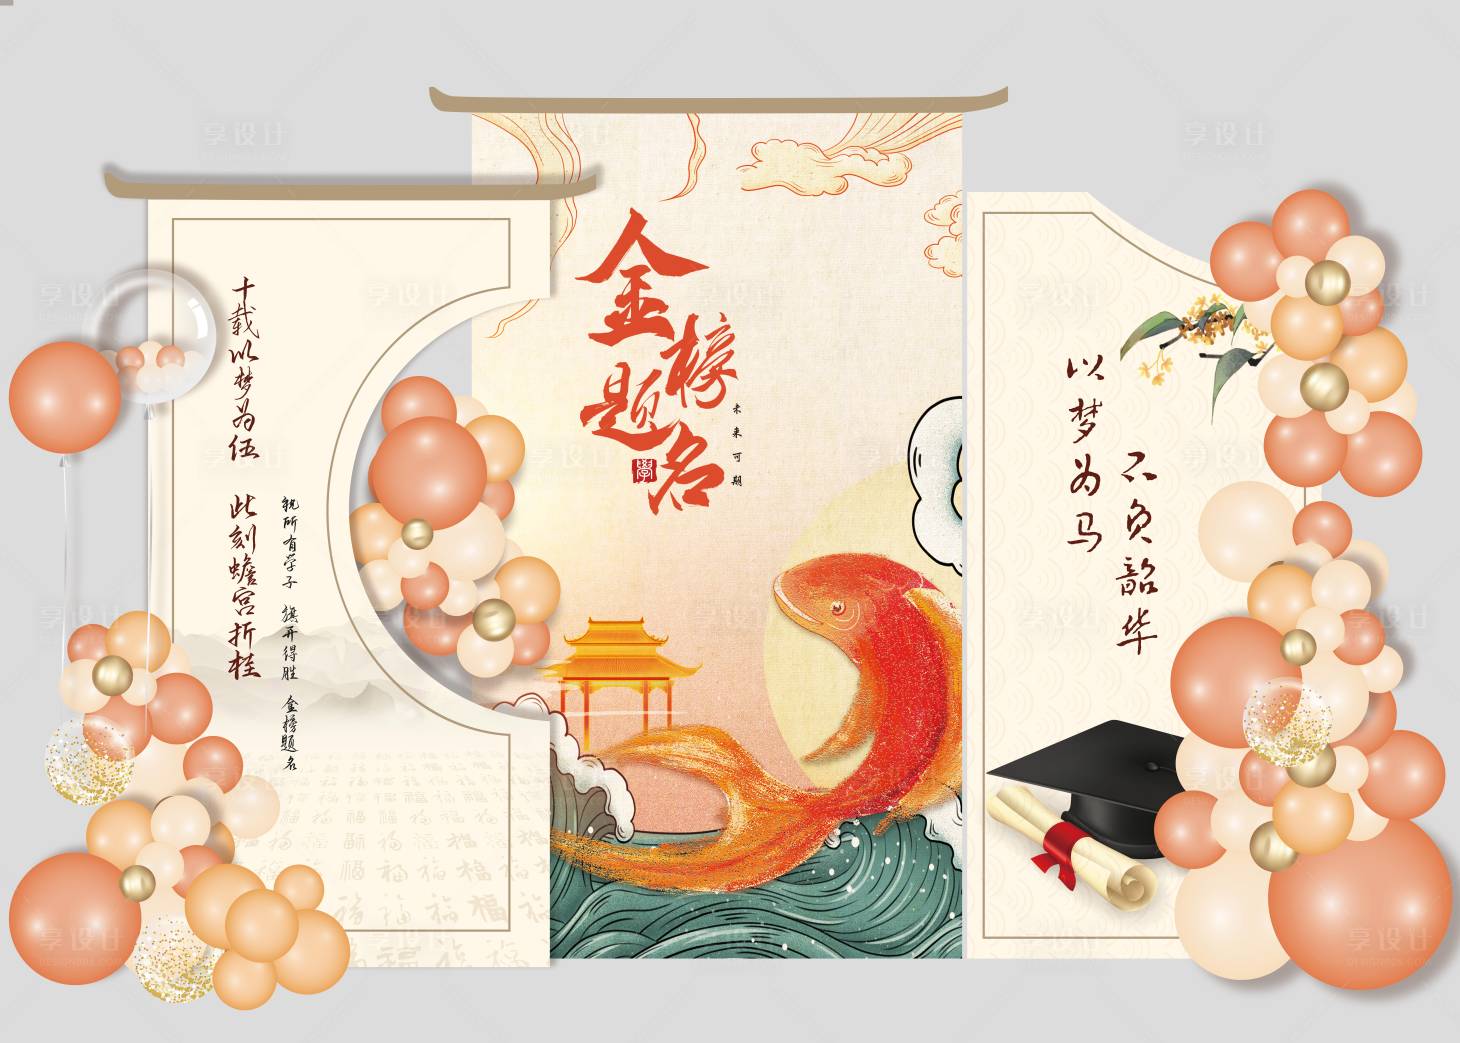 金榜题名
學
未来可期
十载以梦为伍
此刻蟾宫折桂
祝所有学子 旗开得胜 金榜题名
以梦为马
不负韶华
享设计